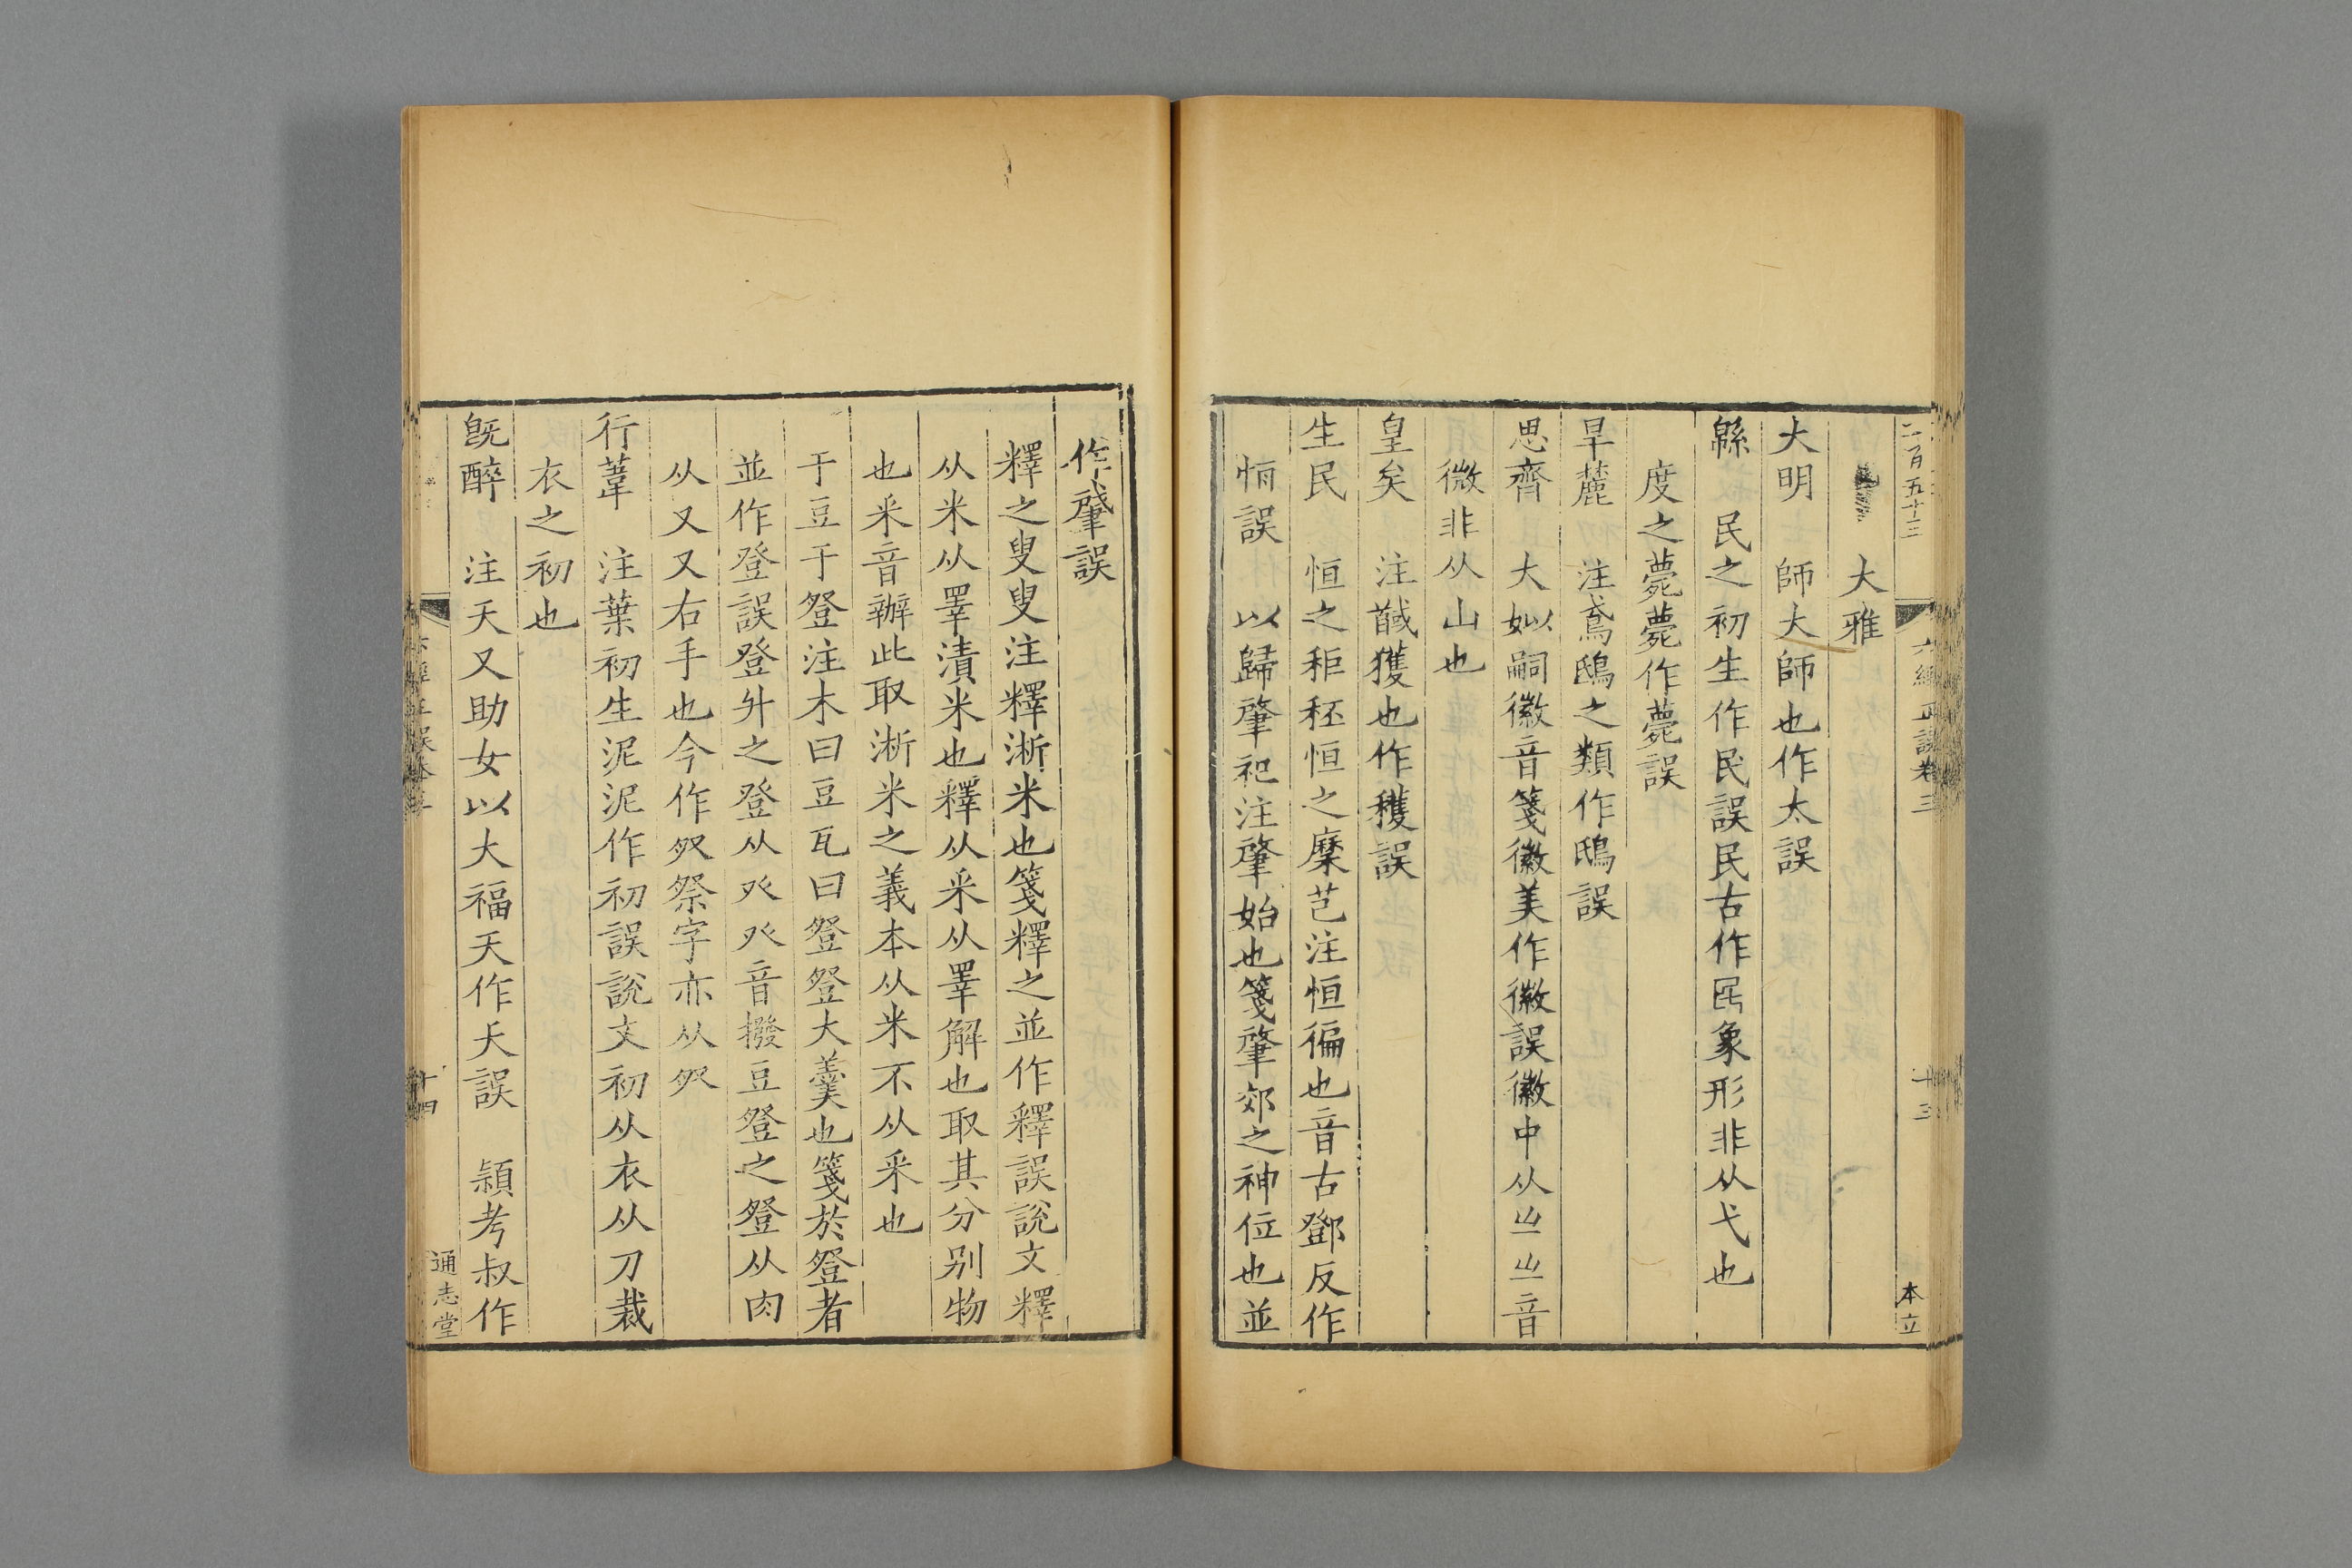 二百五十三
六經正誤卷三
十三
本立
大雅
大明 師大師也作太誤
緜 民之初生作民誤民古作𡈼象形非从弋也
度之薨薨作薨誤
旱麓 注鳶鴟之類作鴟誤
思齊 大姒嗣徽音箋徽美作徽誤徽中从𡵂𡵂音
微非从山也
皇矣 注馘獲也作穫誤
生民 恒之秬秠恒之穈芑注恒徧也音古鄧反作
恒誤 以歸肇祀注肇始也箋肇郊之神位也並
作肇誤
釋之叟叟注釋淅米也箋釋之並作釋誤說文釋
从米从睪漬米也釋从釆釆从睪解也取其分別物
也釆音辦此取淅米之義本从米不从釆也
于豆于豋注木曰豆瓦曰豋豋大羹也箋於豋者
並作登誤登升之登从癶癶音撥豆豋之豋从肉
从又又右手也今作𣦼祭字亦从𣦼
行葦 注葉初生泥泥作初誤說文初从衣从刀裁
衣之初也
旣醉 注天又助女以大福天作夭誤 潁考叔作
六經正誤卷三
十四
通志堂